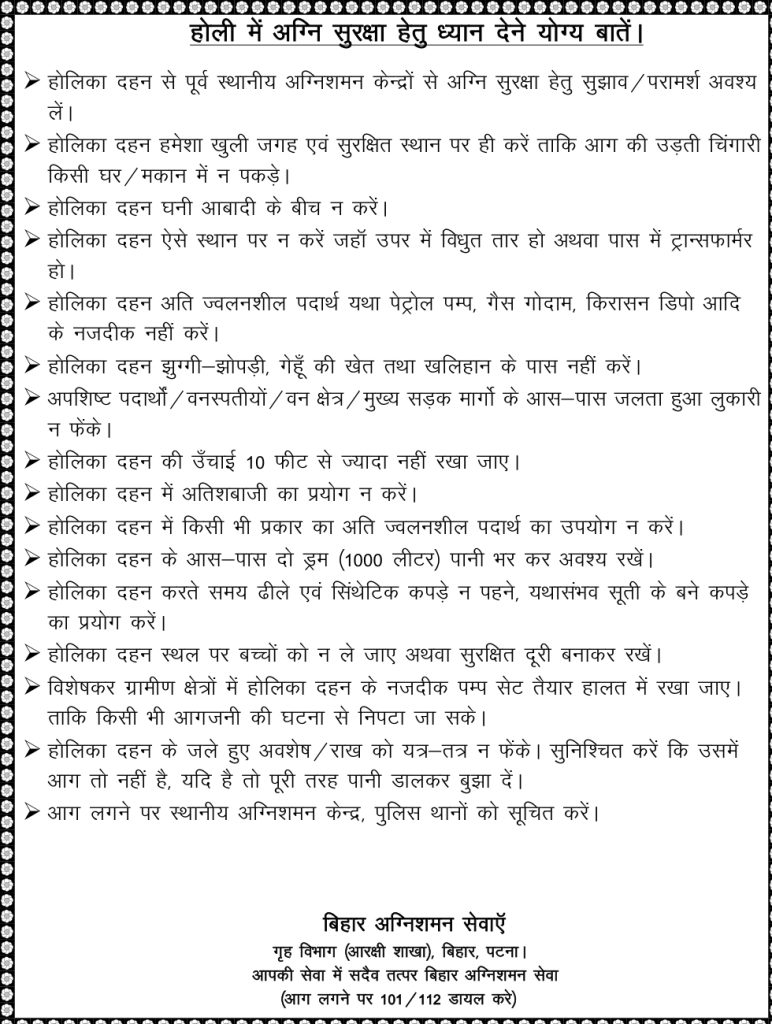 होली में अग्नि सुरक्षा हेतु ध्यान देने योग्य बातें।
➢ होलिका दहन से पूर्व स्थानीय अग्निशमन केन्द्रों से अग्नि सुरक्षा हेतु सुझाव/परामर्श अवश्य
लें।
➢ होलिका दहन हमेशा खुली जगह एवं सुरक्षित स्थान पर ही करें ताकि आग की उड़ती चिंगारी
किसी घर/मकान में न पकड़े।
➢ होलिका दहन घनी आबादी के बीच न करें।
➢ होलिका दहन ऐसे स्थान पर न करें जहॉ उपर में विधुत तार हो अथवा पास में ट्रान्सफार्मर
हो।
➢ होलिका दहन अति ज्वलनशील पदार्थ यथा पेट्रोल पम्प, गैस गोदाम, किरासन डिपो आदि
के नजदीक नहीं करें।
➢ होलिका दहन झुग्गी–झोपड़ी, गेहूँ की खेत तथा खलिहान के पास नहीं करें।
➢ अपशिष्ट पदार्थों/वनस्पतीयों/वन क्षेत्र/मुख्य सड़क मार्गो के आस–पास जलता हुआ लुकारी
न फेंके।
➢ होलिका दहन की उँचाई 10 फीट से ज्यादा नहीं रखा जाए।
➢ होलिका दहन में अतिशबाजी का प्रयोग न करें।
➢ होलिका दहन में किसी भी प्रकार का अति ज्वलनशील पदार्थ का उपयोग न करें।
➢ होलिका दहन के आस–पास दो ड्रम (1000 लीटर) पानी भर कर अवश्य रखें।
➢ होलिका दहन करते समय ढीले एवं सिंथेटिक कपड़े न पहने, यथासंभव सूती के बने कपड़े
का प्रयोग करें।
➢ होलिका दहन स्थल पर बच्चों को न ले जाए अथवा सुरक्षित दूरी बनाकर रखें।
➢ विशेषकर ग्रामीण क्षेत्रों में होलिका दहन के नजदीक पम्प सेट तैयार हालत में रखा जाए।
ताकि किसी भी आगजनी की घटना से निपटा जा सके।
➢ होलिका दहन के जले हुए अवशेष/राख को यत्र–तत्र न फेंके। सुनिश्चित करें कि उसमें
आग तो नहीं है, यदि है तो पूरी तरह पानी डालकर बुझा दें।
➢ आग लगने पर स्थानीय अग्निशमन केन्द्र, पुलिस थानों को सूचित करें।
बिहार अग्निशमन सेवाऍ
गृह विभाग (आरक्षी शाखा), बिहार, पटना।
आपकी सेवा में सदैव तत्पर बिहार अग्निशमन सेवा
(आग लगने पर 101/112 डायल करे)